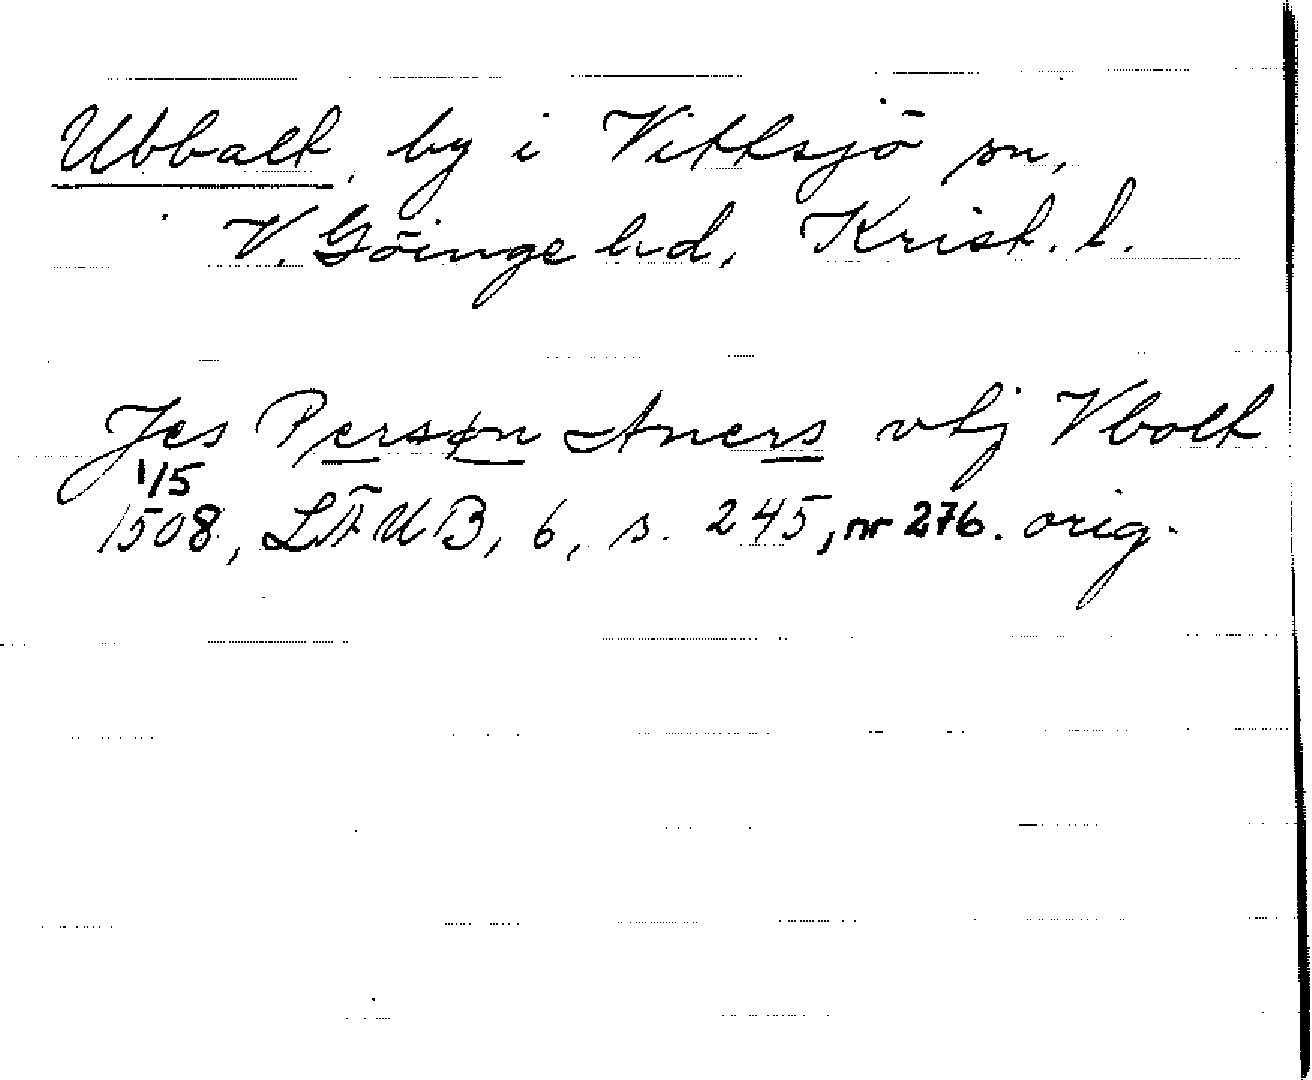 Ubbalt, by i Vittsjö sn,
V. Göinge hd, Krist. l.
Jes Persøn Aners vtj Vbolt
1/5
1508, LÄUB, 6, s. 245, nr 276. orig.